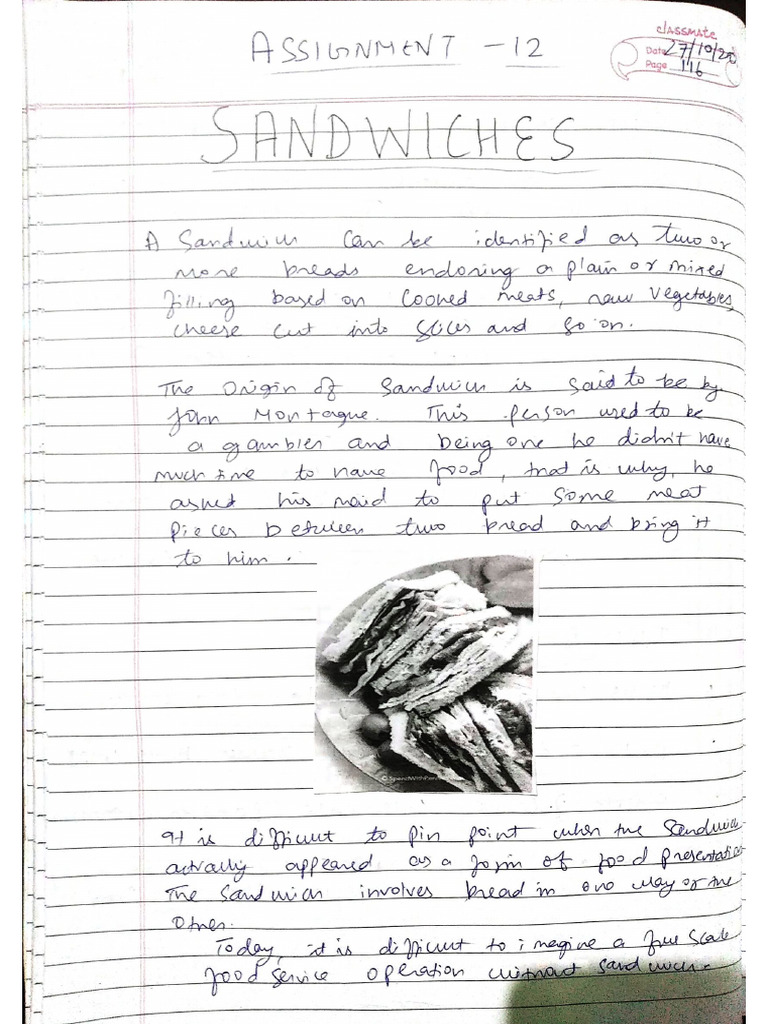 classmate
Date 27/10/20
Page 116
ASSIGNMENT - 12
SANDWICHES
A Sandwich can be identified as two or
more breads enclosing a plain or mixed
filling based on cooked meats, raw vegetables,
cheese cut into slices and so on.
The origin of Sandwich is said to be by
John Montague. This person used to be
a gambler and being one he didn't have
much time to have food, that is why, he
asked his maid to put some meat
pieces between two bread and bring it
to him.
It is difficult to pin point when the Sandwich
actually appeared as a form of food presentation
The Sandwich involves bread in one way or the
other.
Today, it is difficult to imagine a full scale
food service operation without sandwich.